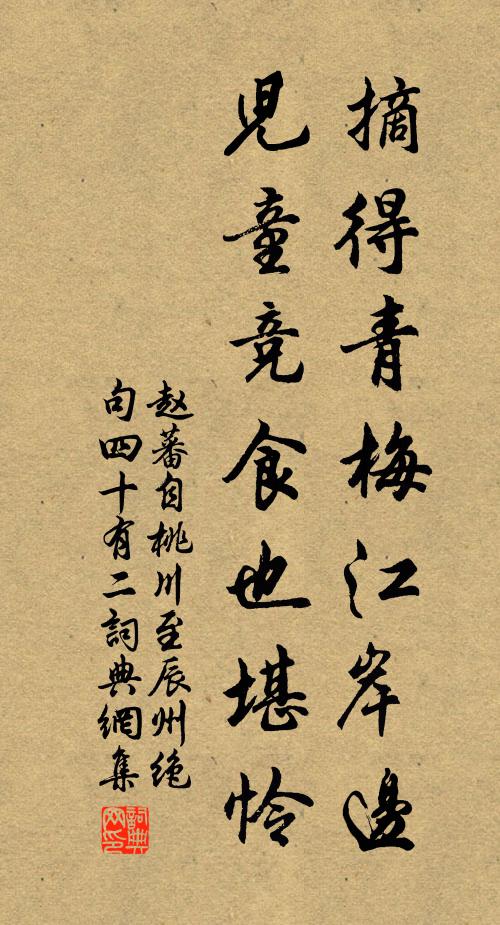 摘得青梅江岸邊
兒童竞食也堪怜
赵蕃自桃川至辰州绝
句四十有二詞典網集
詞典
网印